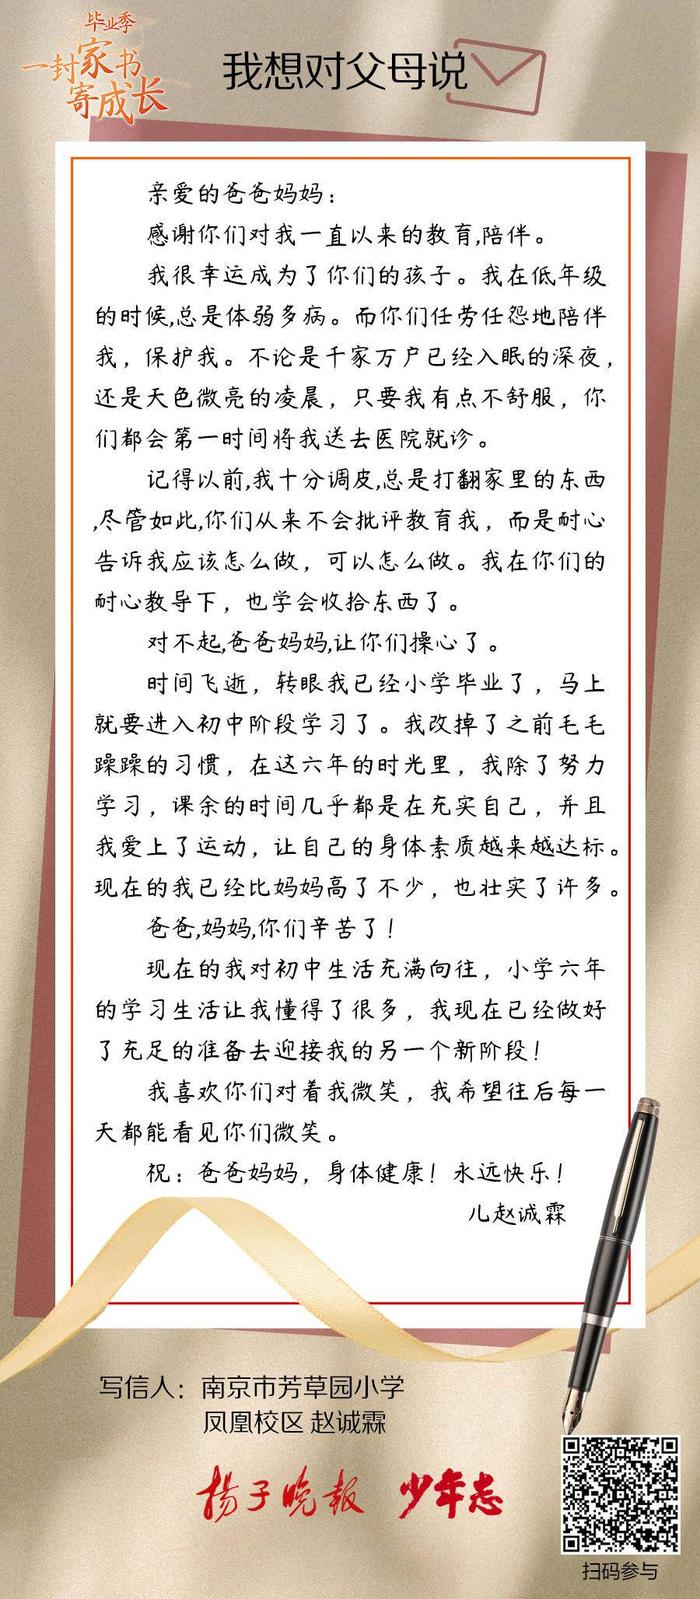 毕业季
一封家书
寄成长
我想对父母说
亲爱的爸爸妈妈：
感谢你们对我一直以来的教育,陪伴。
我很幸运成为了你们的孩子。我在低年级
的时候,总是体弱多病。而你们任劳任怨地陪伴
我，保护我。不论是千家万户已经入眠的深夜，
还是天色微亮的凌晨，只要我有点不舒服，你
们都会第一时间将我送去医院就诊。
记得以前,我十分调皮,总是打翻家里的东西
,尽管如此,你们从来不会批评教育我，而是耐心
告诉我应该怎么做，可以怎么做。我在你们的
耐心教导下，也学会收拾东西了。
对不起,爸爸妈妈,让你们操心了。
时间飞逝，转眼我已经小学毕业了，马上
就要进入初中阶段学习了。我改掉了之前毛毛
躁躁的习惯，在这六年的时光里，我除了努力
学习，课余的时间几乎都是在充实自己，并且
我爱上了运动，让自己的身体素质越来越达标。
现在的我已经比妈妈高了不少，也壮实了许多。
爸爸,妈妈,你们辛苦了！
现在的我对初中生活充满向往，小学六年
的学习生活让我懂得了很多，我现在已经做好
了充足的准备去迎接我的另一个新阶段！
我喜欢你们对着我微笑，我希望往后每一
天都能看见你们微笑。
祝：爸爸妈妈，身体健康！永远快乐！
儿赵诚霖
写信人：南京市芳草园小学
凤凰校区 赵诚霖
扬子晚报 少年志
扫码参与